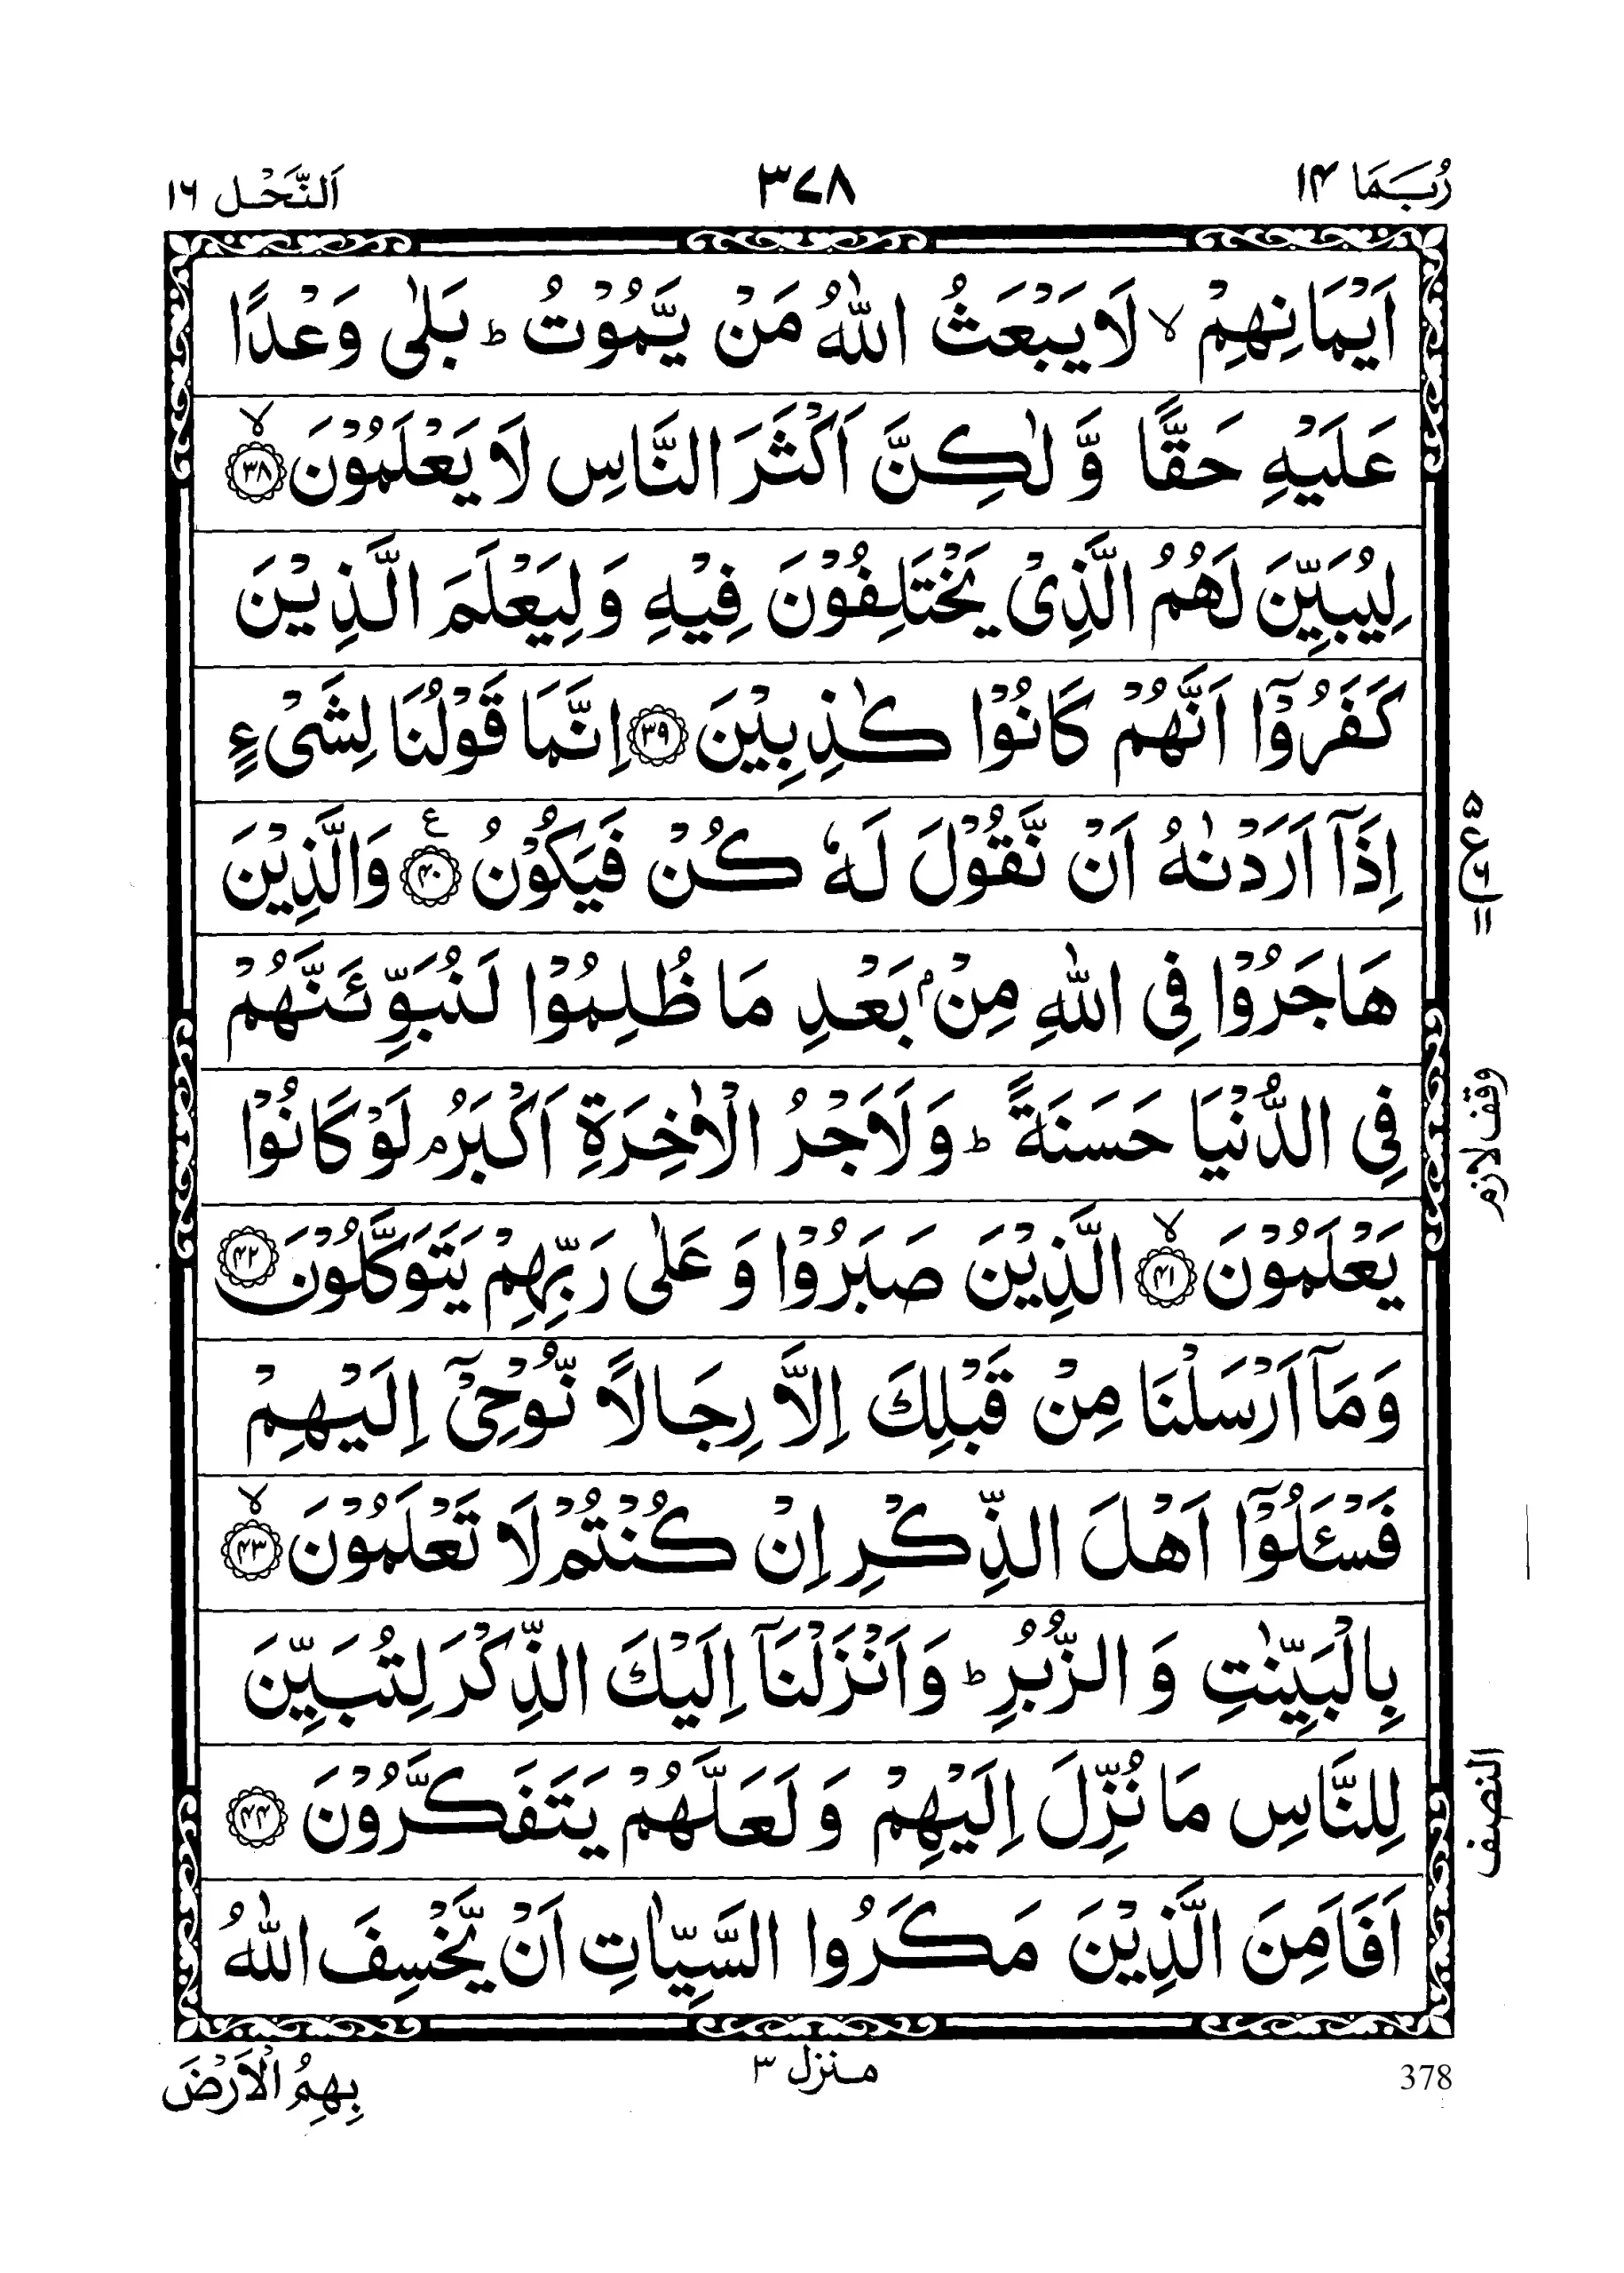 رُبَمَا ۱۴
۳۷۸
اَلنَّحْل ۱۶
اَيْمَانِهِمْ ۙ لَا يَبْعَثُ اللّٰهُ مَنْ يَّمُوْتُ ؕ بَلٰى وَعْدًا
عَلَيْهِ حَقًّا وَّ لٰكِنَّ اَكْثَرَ النَّاسِ لَا يَعْلَمُوْنَ ۙ﴿۳۸﴾
لِيُبَيِّنَ لَهُمُ الَّذِىْ يَخْتَلِفُوْنَ فِيْهِ وَلِيَعْلَمَ الَّذِيْنَ
كَفَرُوْۤا اَنَّهُمْ كَانُوْا كٰذِبِيْنَ ﴿۳۹﴾ اِنَّمَا قَوْلُنَا لِشَىْءٍ
اِذَاۤ اَرَدْنٰهُ اَنْ نَّقُوْلَ لَهٗ كُنْ فَيَكُوْنُ ﴿۴۰﴾ ع وَالَّذِيْنَ
هَاجَرُوْا فِى اللّٰهِ مِنْۢ بَعْدِ مَا ظُلِمُوْا لَنُبَوِّئَنَّهُمْ
فِى الدُّنْيَا حَسَنَةً ؕ وَلَاَجْرُ الْاٰخِرَةِ اَكْبَرُ ۘ لَوْ كَانُوْا
يَعْلَمُوْنَ ۙ﴿۴۱﴾ الَّذِيْنَ صَبَرُوْا وَ عَلٰى رَبِّهِمْ يَتَوَكَّلُوْنَ ﴿۴۲﴾
وَمَاۤ اَرْسَلْنَا مِنْ قَبْلِكَ اِلَّا رِجَالًا نُّوْحِىْۤ اِلَيْهِمْ
فَسْئَلُوْۤا اَهْلَ الذِّكْرِ اِنْ كُنْتُمْ لَا تَعْلَمُوْنَ ۙ﴿۴۳﴾
بِالْبَيِّنٰتِ وَ الزُّبُرِ ؕ وَاَنْزَلْنَاۤ اِلَيْكَ الذِّكْرَ لِتُبَيِّنَ
لِلنَّاسِ مَا نُزِّلَ اِلَيْهِمْ وَ لَعَلَّهُمْ يَتَفَكَّرُوْنَ ﴿۴۴﴾
اَفَاَمِنَ الَّذِيْنَ مَكَرُوا السَّيِّاٰتِ اَنْ يَّخْسِفَ اللّٰهُ
۵
ع
۶
۱۱
وقف لازم
النصف
منزل ۳
بِهِمُ الْاَرْضَ
378